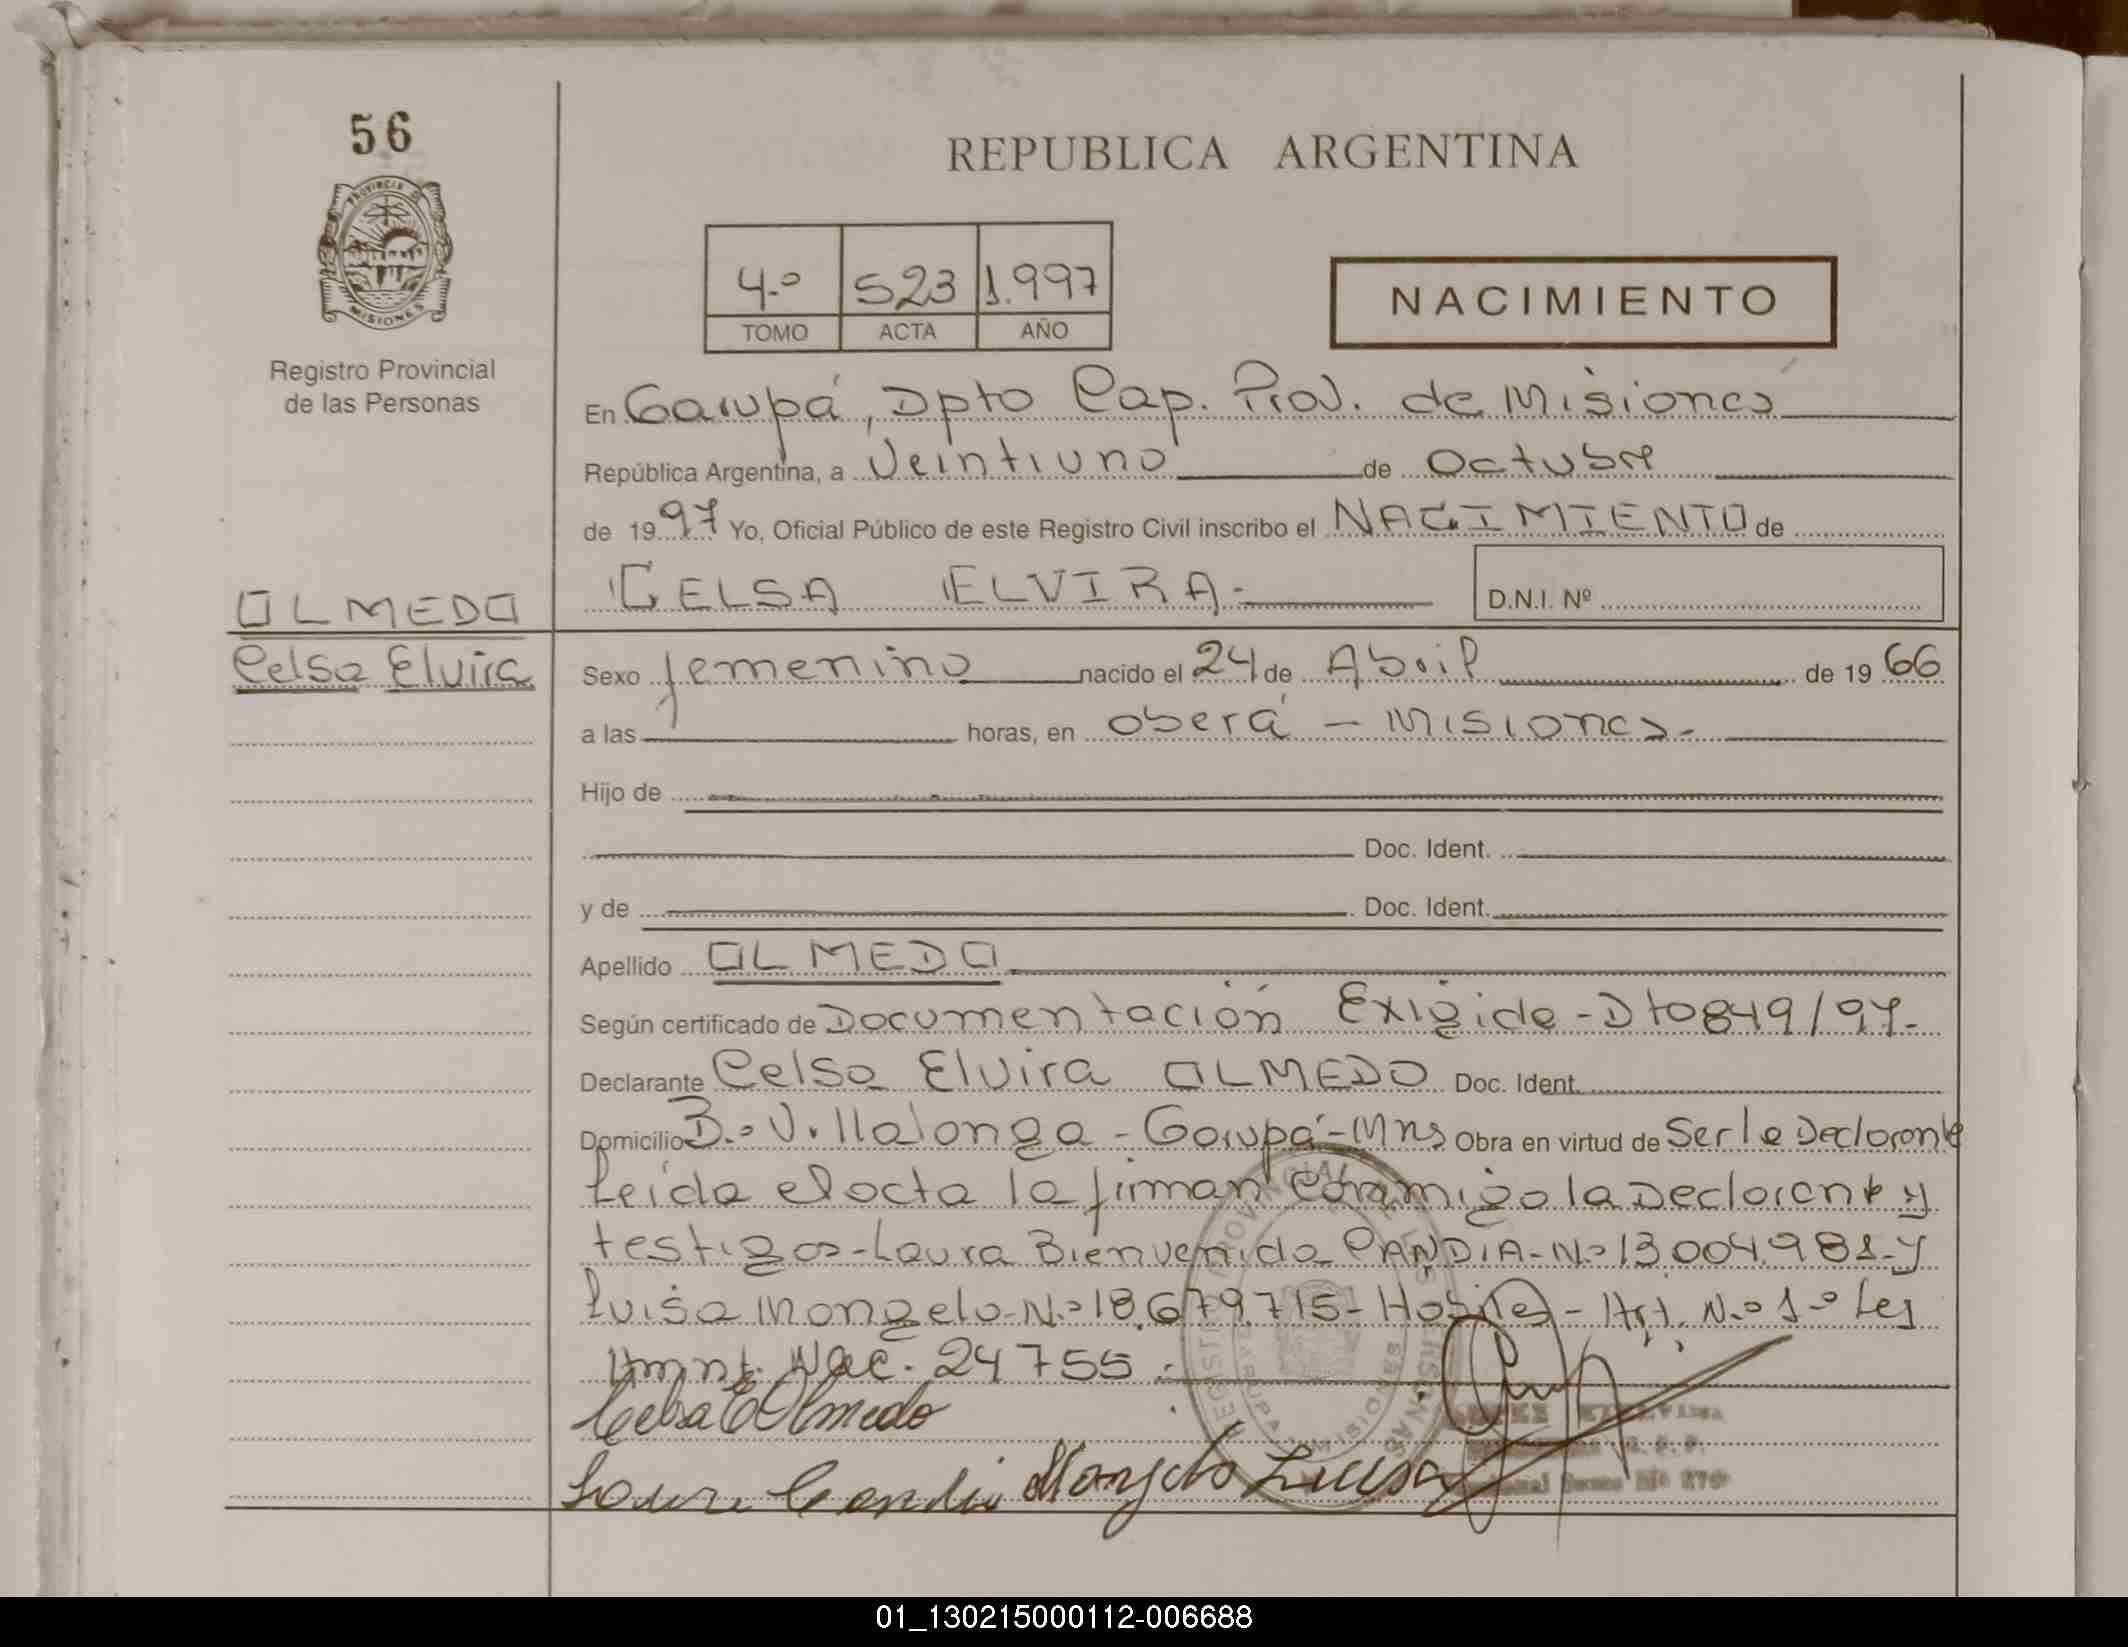 56
REPUBLICA ARGENTINA
PROVINCIA DE
MISIONES
Registro Provincial
de las Personas
4.º 523 1.997
TOMO ACTA AÑO
NACIMIENTO
En Garupá, Dpto Cap. Prov. de Misiones
República Argentina, a Veintiuno de Octubre
de 1997 Yo, Oficial Público de este Registro Civil inscribo el NACIMIENTO de
CELSA ELVIRA.-
D.N.I. Nº
OLMEDO
Celsa Elvira
Sexo femenino nacido el 24 de Abril de 1966
a las horas, en Oberá - Misiones.-
Hijo de
Doc. Ident.
y de Doc. Ident.
Apellido OLMEDO
Según certificado de Documentación Exigida - Dto 849/97.-
Declarante Celsa Elvira OLMEDO Doc. Ident.
Domicilio B.º Villalonga - Garupá - Mns Obra en virtud de Ser la Declarante
Leída el acta la firman conmigo la Declarante y
testigos - Laura Bienvenida CANDIA - N.º 13.004.981 - y
Luisa Mongelo - N.º 18.679.715 - - Art. N.º 1.º Ley
Nac. 24755.-
Celsa E Olmedo
Laura Candia Mongelo Luisa
REGISTRO PROVINCIAL DE LAS PERSONAS
GARUPA MISIONES
01_130215000112-006688